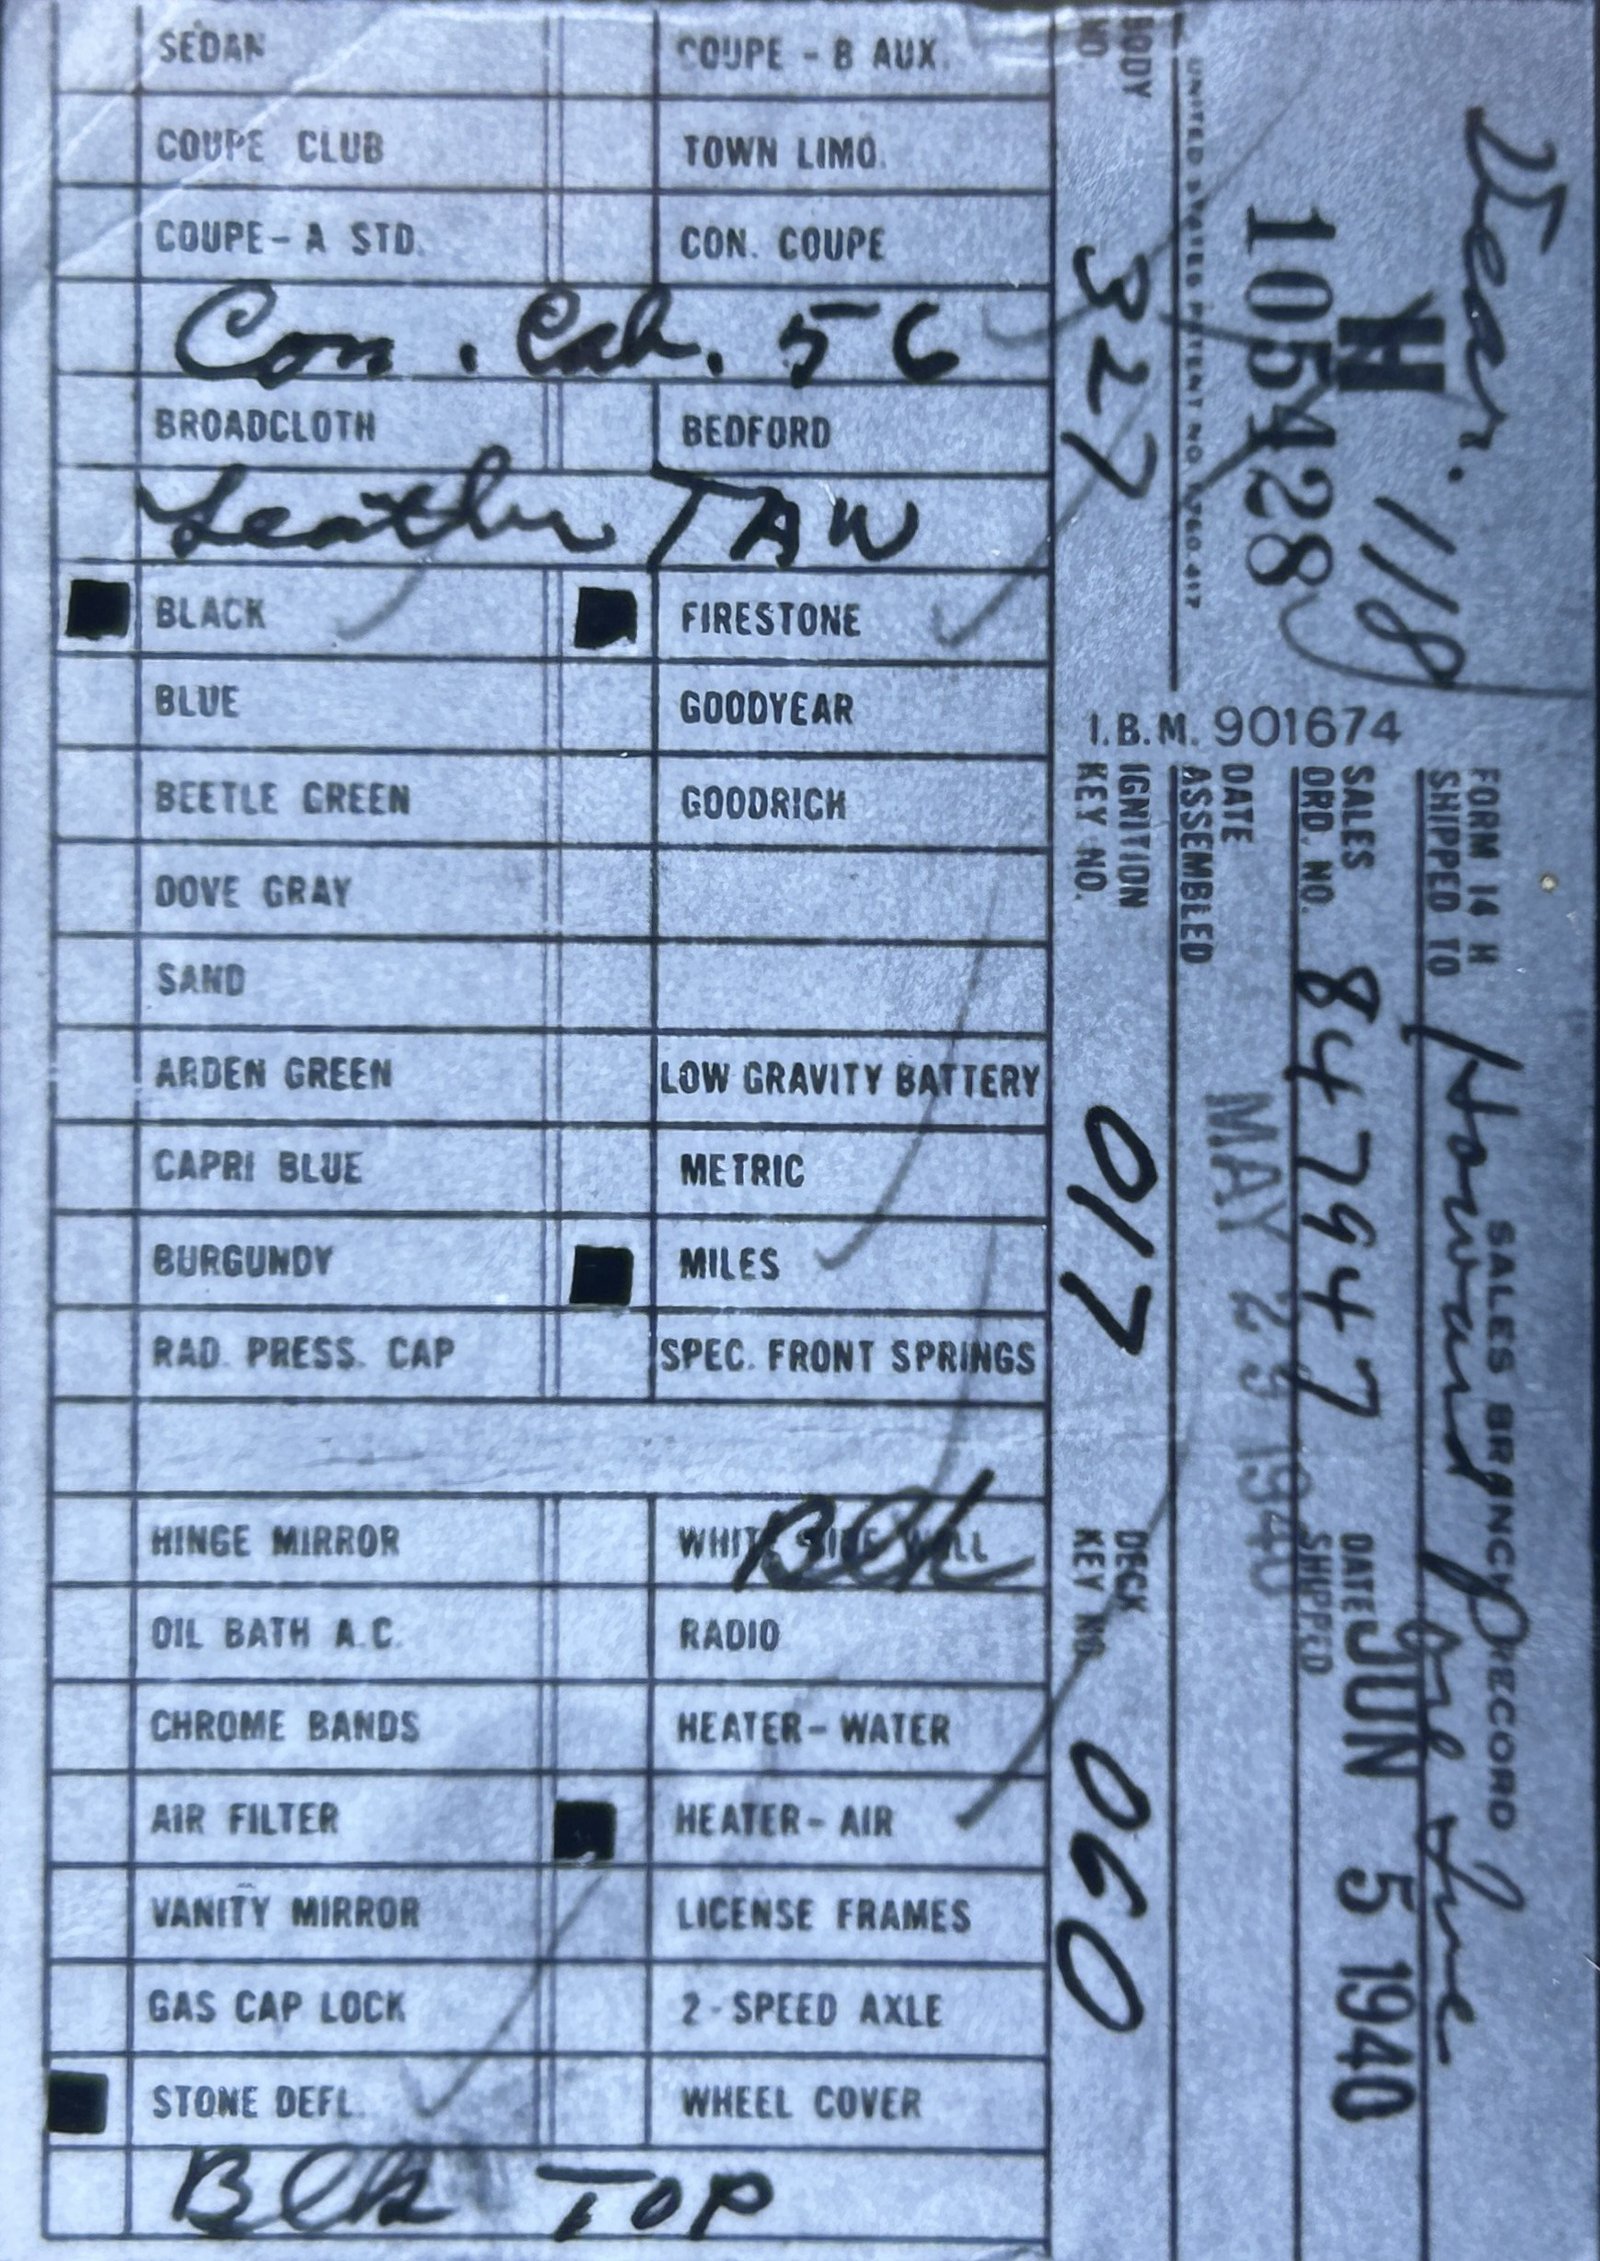 SEDAN COUPE - B AUX.
COUPE CLUB TOWN LIMO.
COUPE - A STD. CON. COUPE
Con. Cab. 56
BROADCLOTH BEDFORD
Leather TAN
BLACK FIRESTONE
BLUE GOODYEAR
BEETLE GREEN GOODRICH
DOVE GRAY
SAND
ARDEN GREEN LOW GRAVITY BATTERY
CAPRI BLUE METRIC
BURGUNDY MILES
RAD. PRESS. CAP SPEC. FRONT SPRINGS
HINGE MIRROR WHITE SIDE WALL Blk
OIL BATH A.C. RADIO
CHROME BANDS HEATER - WATER
AIR FILTER HEATER - AIR
VANITY MIRROR LICENSE FRAMES
GAS CAP LOCK 2 - SPEED AXLE
STONE DEFL. WHEEL COVER
Blk TOP
I.B.M. 901674
Dear. 118
SALES BRANCH RECORD
FORM 14 H
SHIPPED TO Howard
H
105428
SALES ORD. NO. 847947
DATE SHIPPED JUN 5 1940
DATE ASSEMBLED MAY 29 1940
UNITED STATES PATENT NO. 1,760,417
BODY NO. 327
IGNITION KEY NO. 017
DECK KEY NO. 060